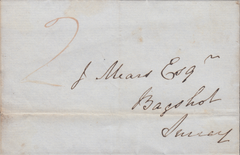 2
J Mears Esqr
Bagshot
Surrey